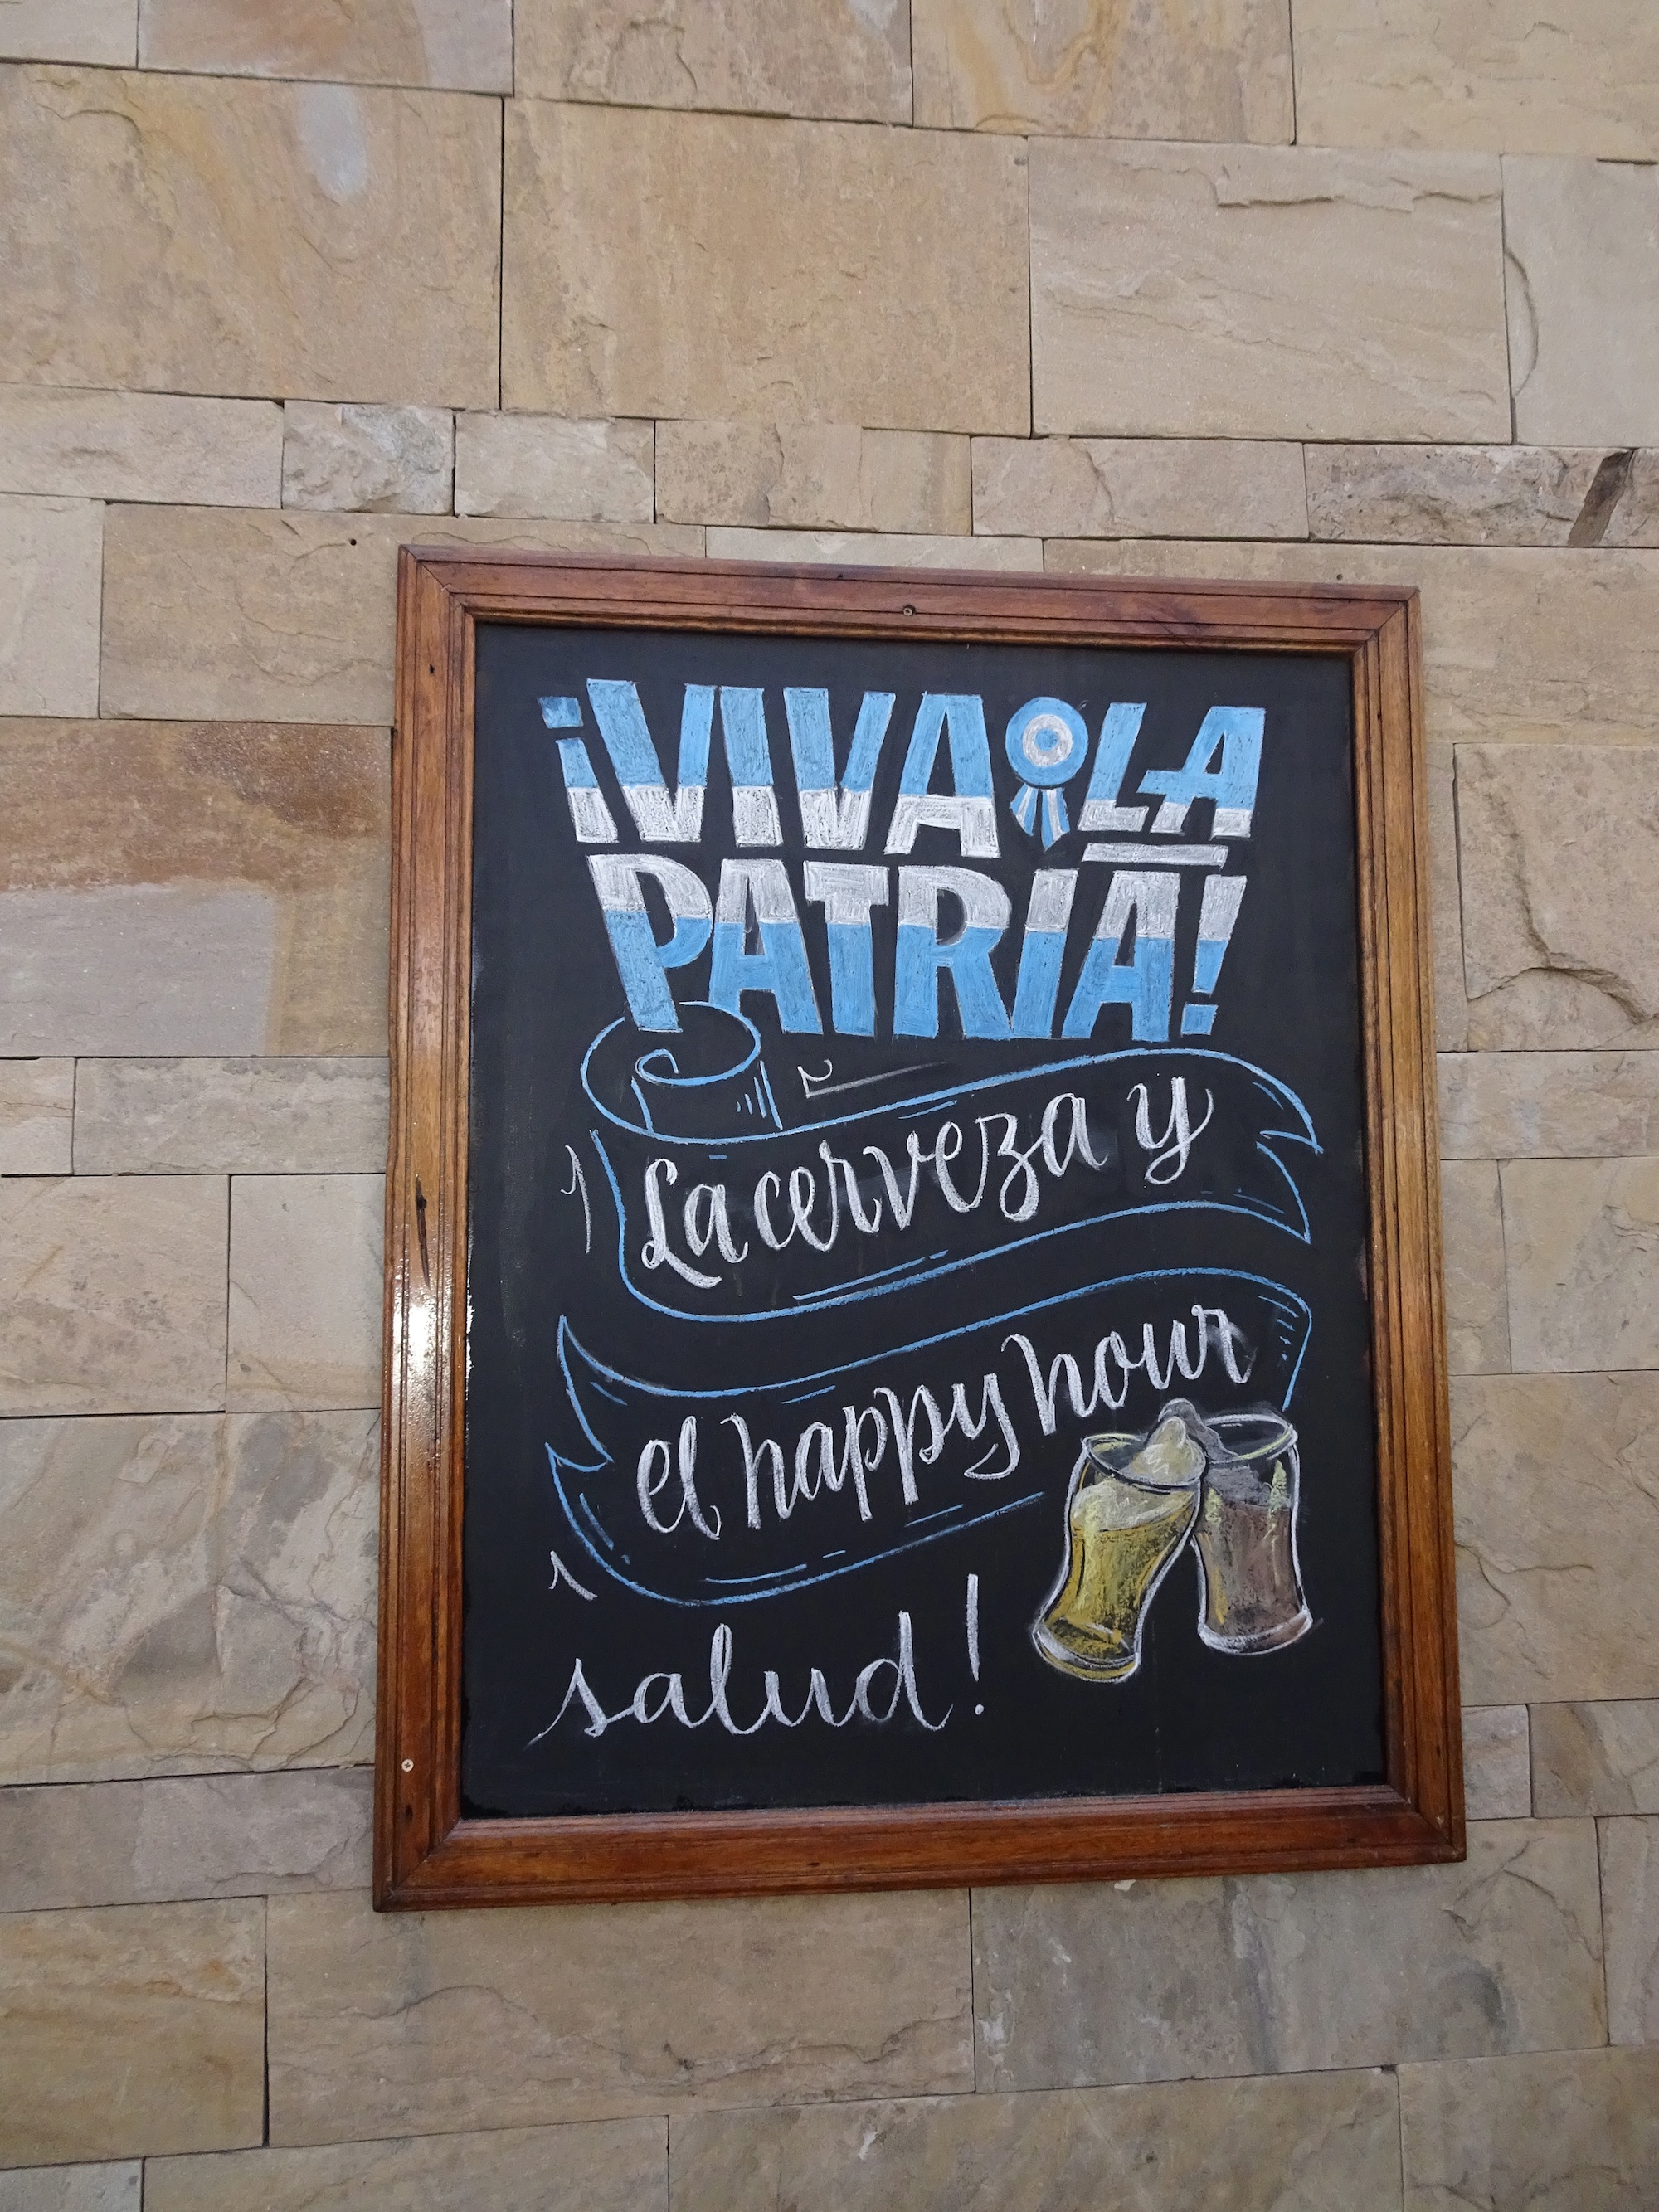 ¡VIVA LA
PATRIA!
La cerveza y
el happy hour
salud!